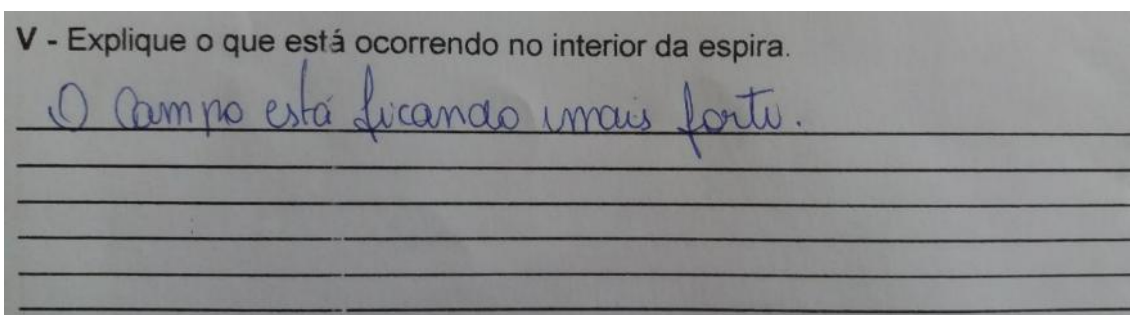 V - Explique o que está ocorrendo no interior da espira.
O Campo está ficando mais forte.